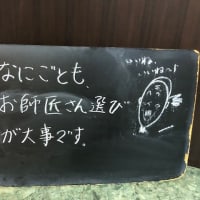 なにごとも、
お師匠さん選び
が大事です。